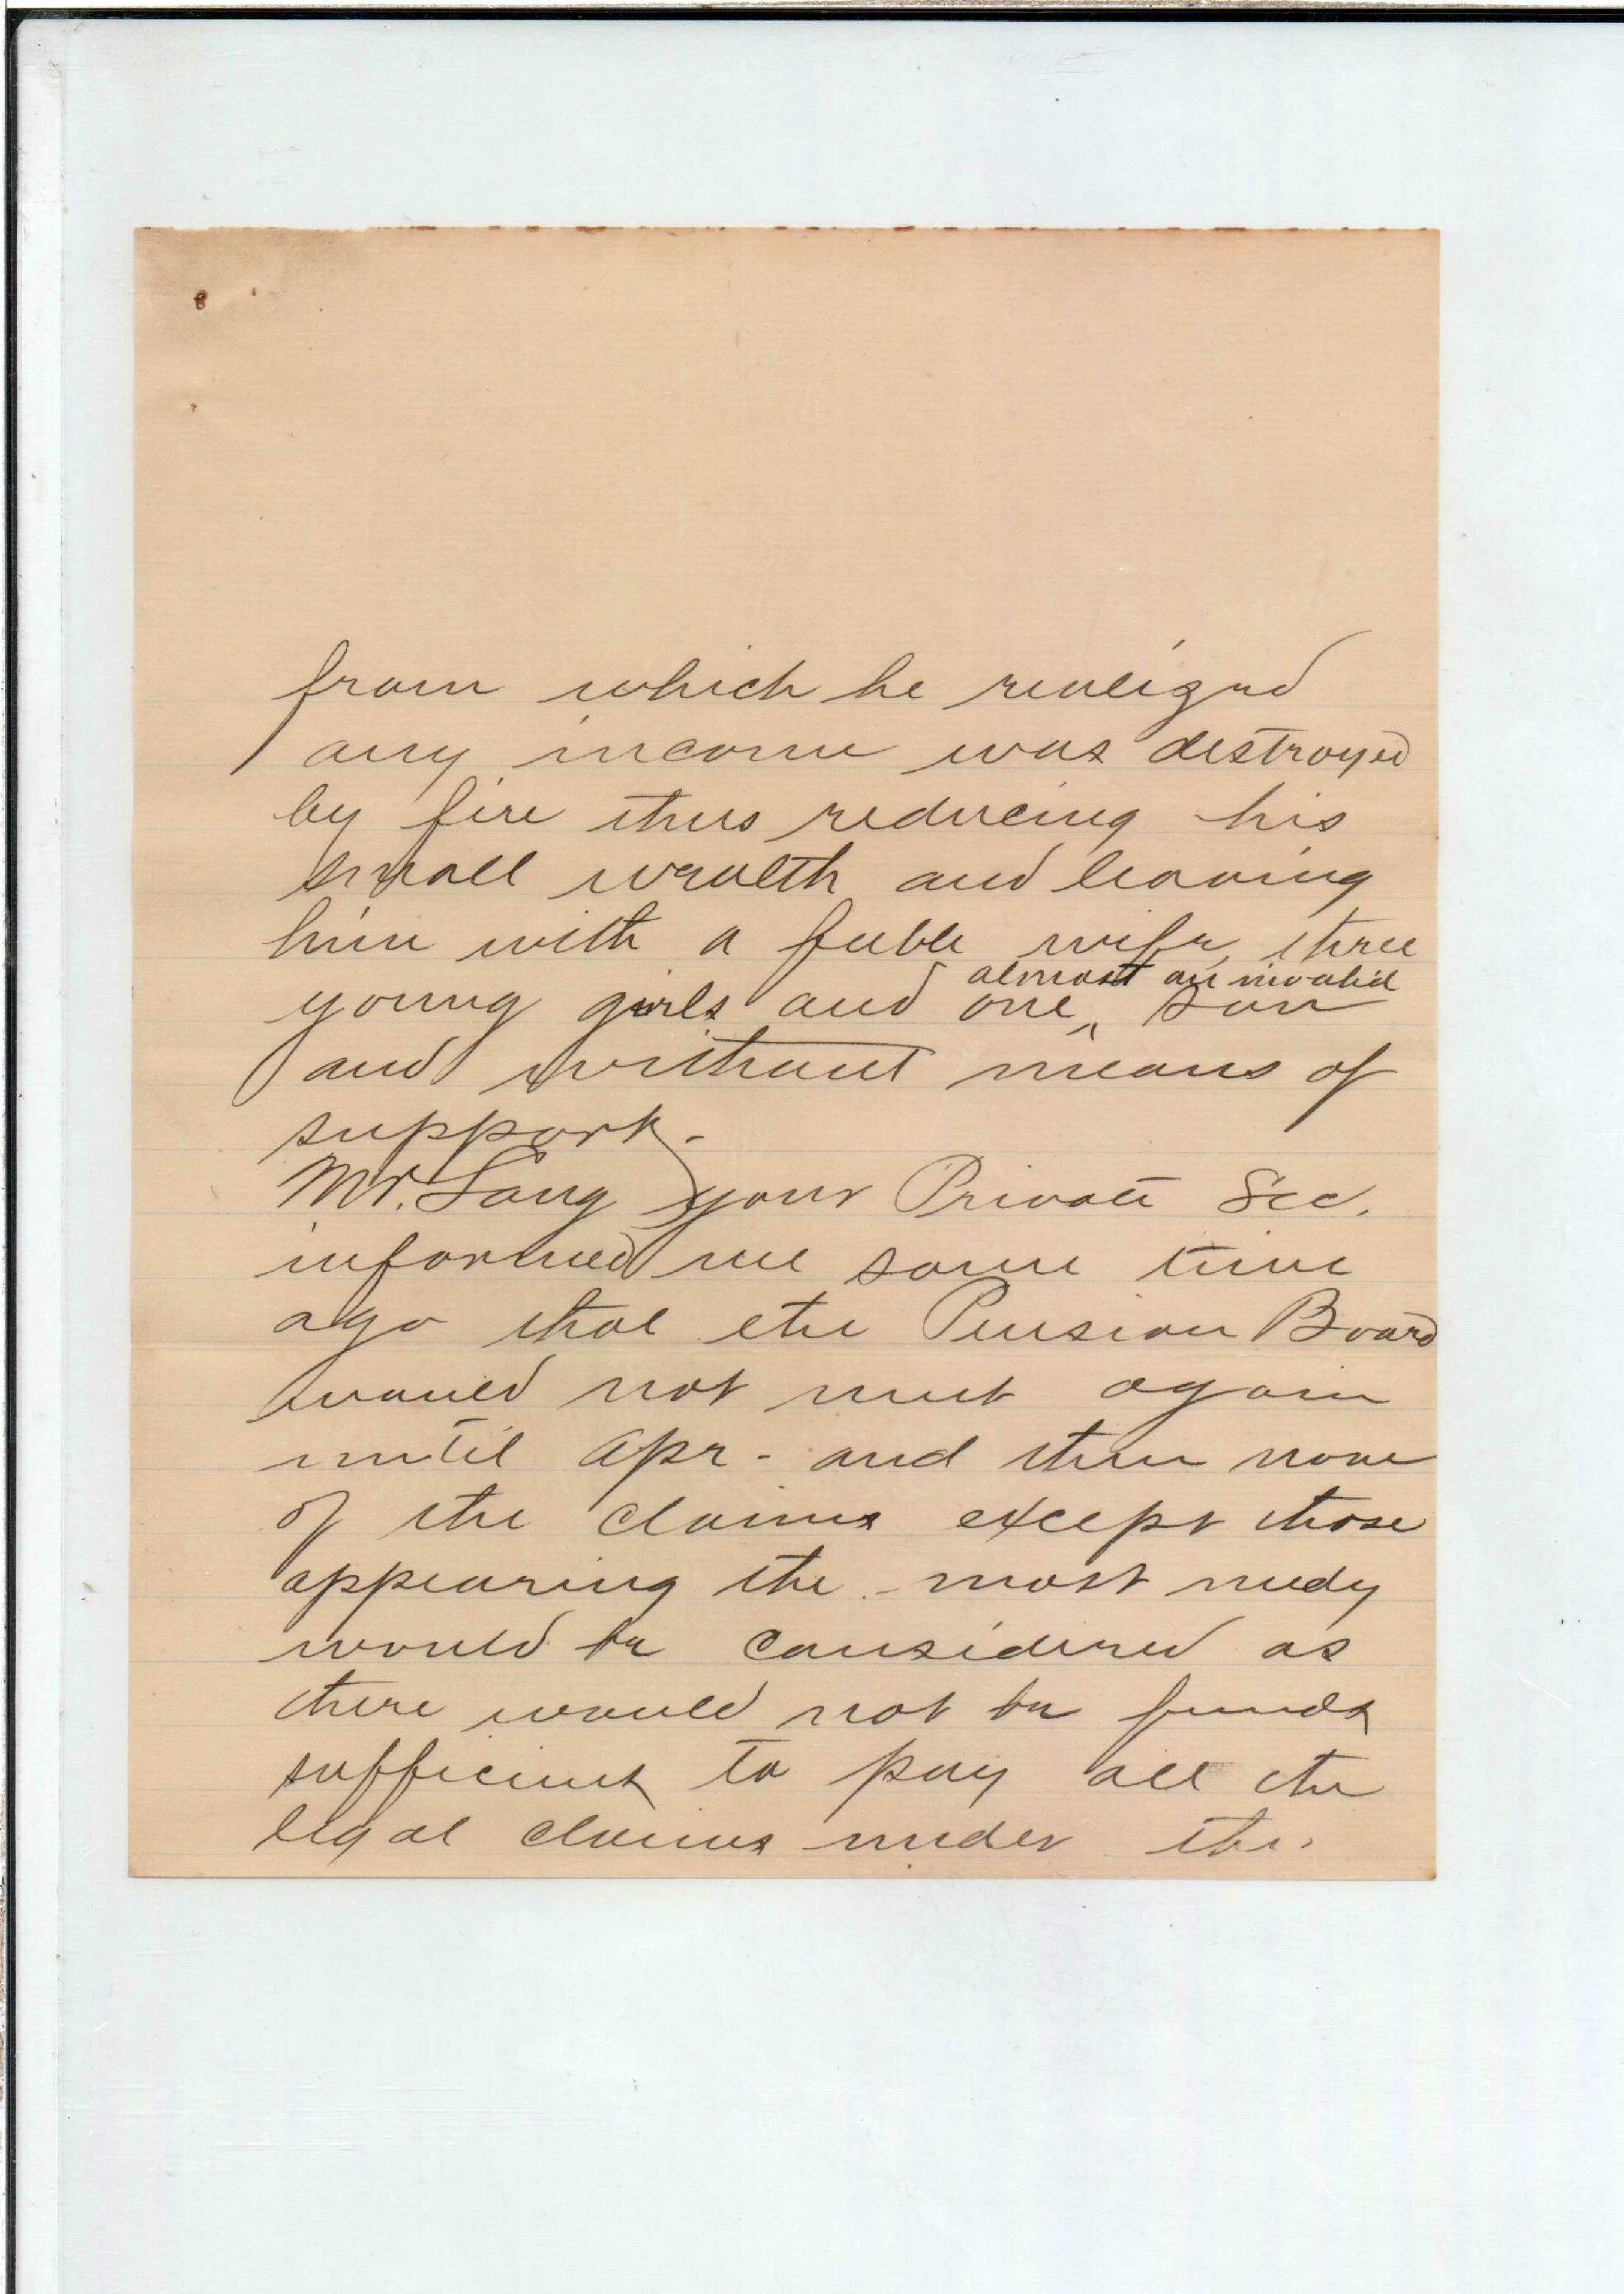 from which he realized
any income was destroyed
by fire thus reducing his
small wealth and leaving
him with a feeble wife, three
almost an invalid
young girls and one ‸ son
and without means of
support.
Mr. Lang your Private Sec.
informed me some time
ago that the Pension Board
would not meet again
until Apr - and then none
of the claims except those
appearing the most needy
would be considered as
there would not be funds
sufficient to pay all the
legal claims under the